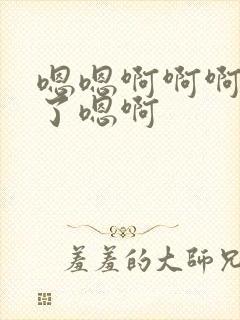 嗯嗯啊啊啊
了嗯啊
羞羞的大师兄